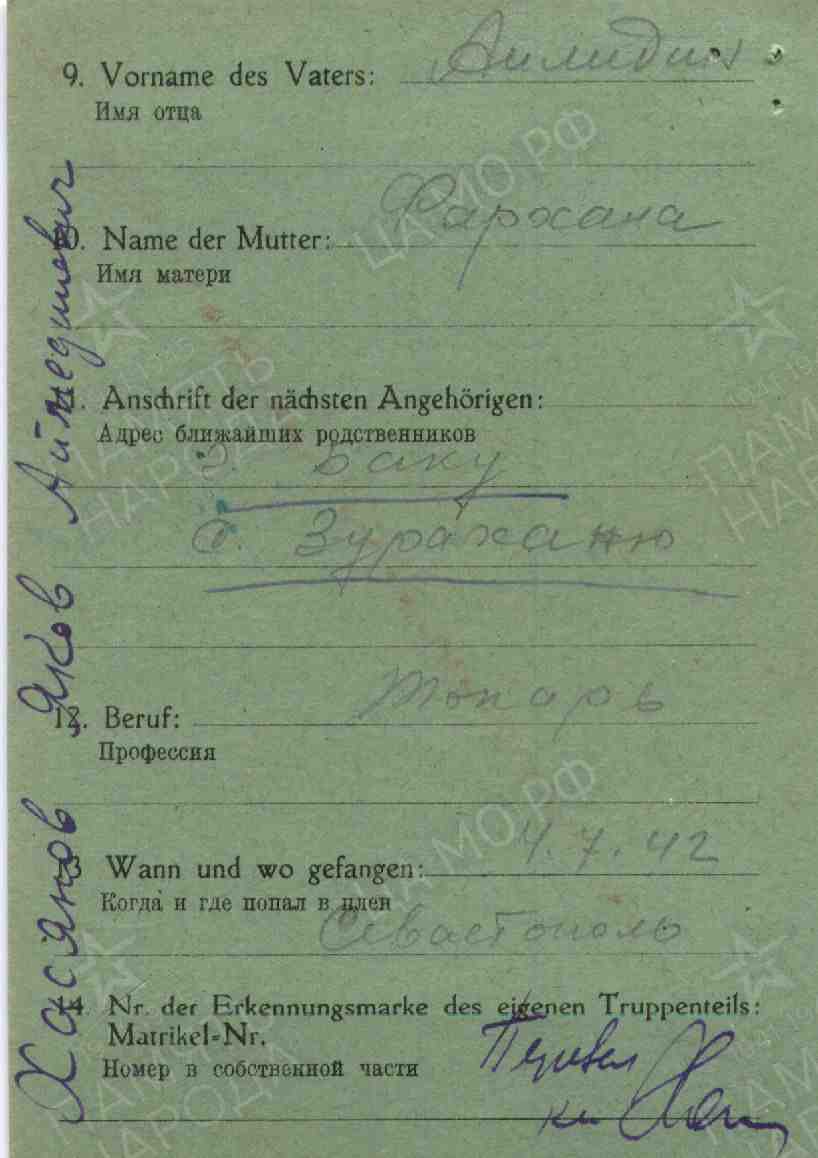 9. Vorname des Vaters: Аймедин
Имя отца
10. Name der Mutter: Фархана
Имя матери
11. Anschrift der nächsten Angehörigen:
Адрес ближайших родственников
г. Баку
с. Зураханю
12. Beruf: Токарь
Профессия
13 Wann und wo gefangen: 4.7.42
Когда и где попал в плен
Севастополь
14. Nr. der Erkennungsmarke des eigenen Truppenteils:
Matrikel-Nr.
Номер в собственной части
Перевел
Хасянов Яков Аймединович
ЦА МО.РФ
ПАМЯТЬ
НАРОДА
ЦА МО.РФ
ПАМЯТЬ
НАРОДА